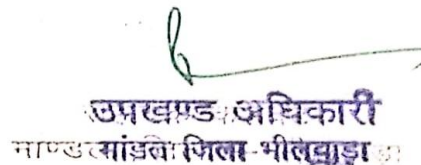 उपखण्ड अधिकारी
मांडल जिला-भीलवाड़ा